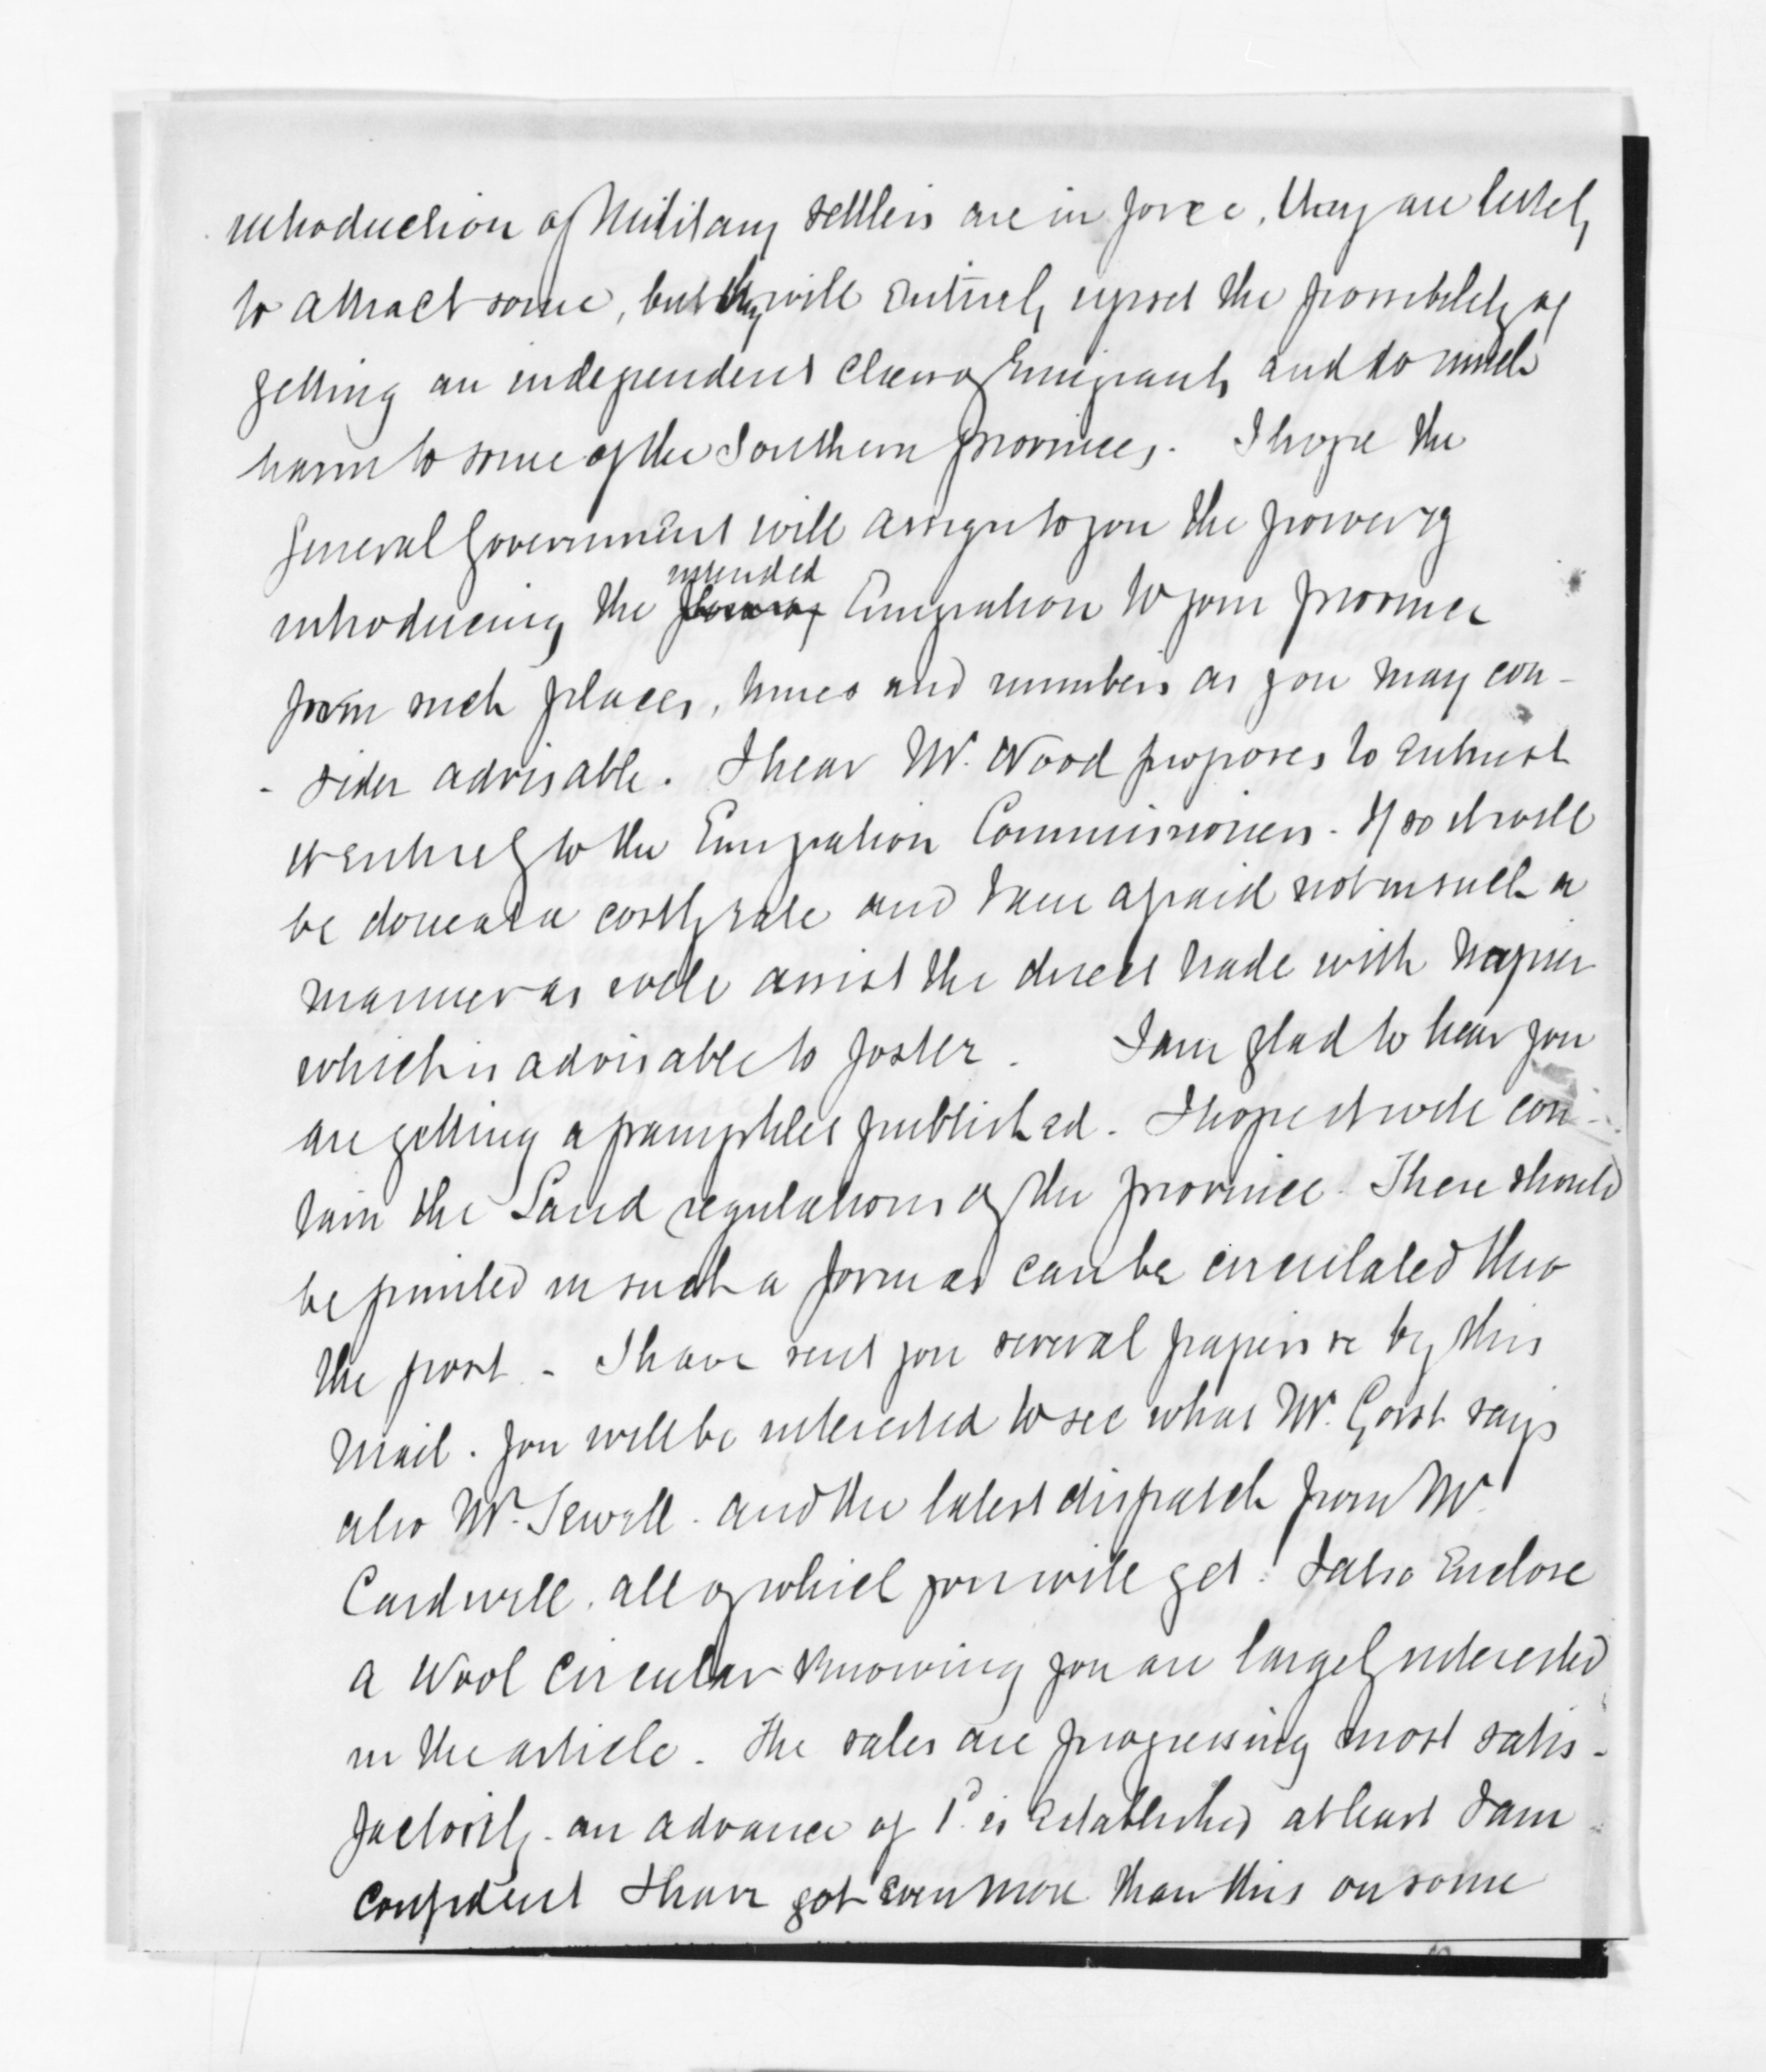 introduction of Military settlers are in force, they are likely
to attract some, but they will entirely upset the possibility of
getting an independent class of Emigrants and do much
harm to some of the Southern provinces. I hope the
General Government will assign to you the power of
introducing the intended Emigration to your province
from such places, times and numbers as you may con-
- sider advisable. I hear Mr. Wood proposes to entrust
it entirely to the Emigration Commissioners. If so it will
be done at a costly rate and I am afraid not in such a
manner as will assist the direct trade with Napier
which is advisable to foster. I am glad to hear you
are getting a pamphlet published. I hope it will con-
tain the Land regulations of the province. These should
be printed in such a form as can be circulated thro
the post - I have sent you several papers &c by this
Mail. You will be interested to see what Mr. Gorst says
also Mr. Sewell. and the latest dispatch from Mr.
Cardwell, all of which you will get. I also Enclose
a Wool Circular knowing you are largely interested
in the article. The sales are progressing most satis-
factorily - an advance of 1d is established at least I am
confident I have got even more than this on some